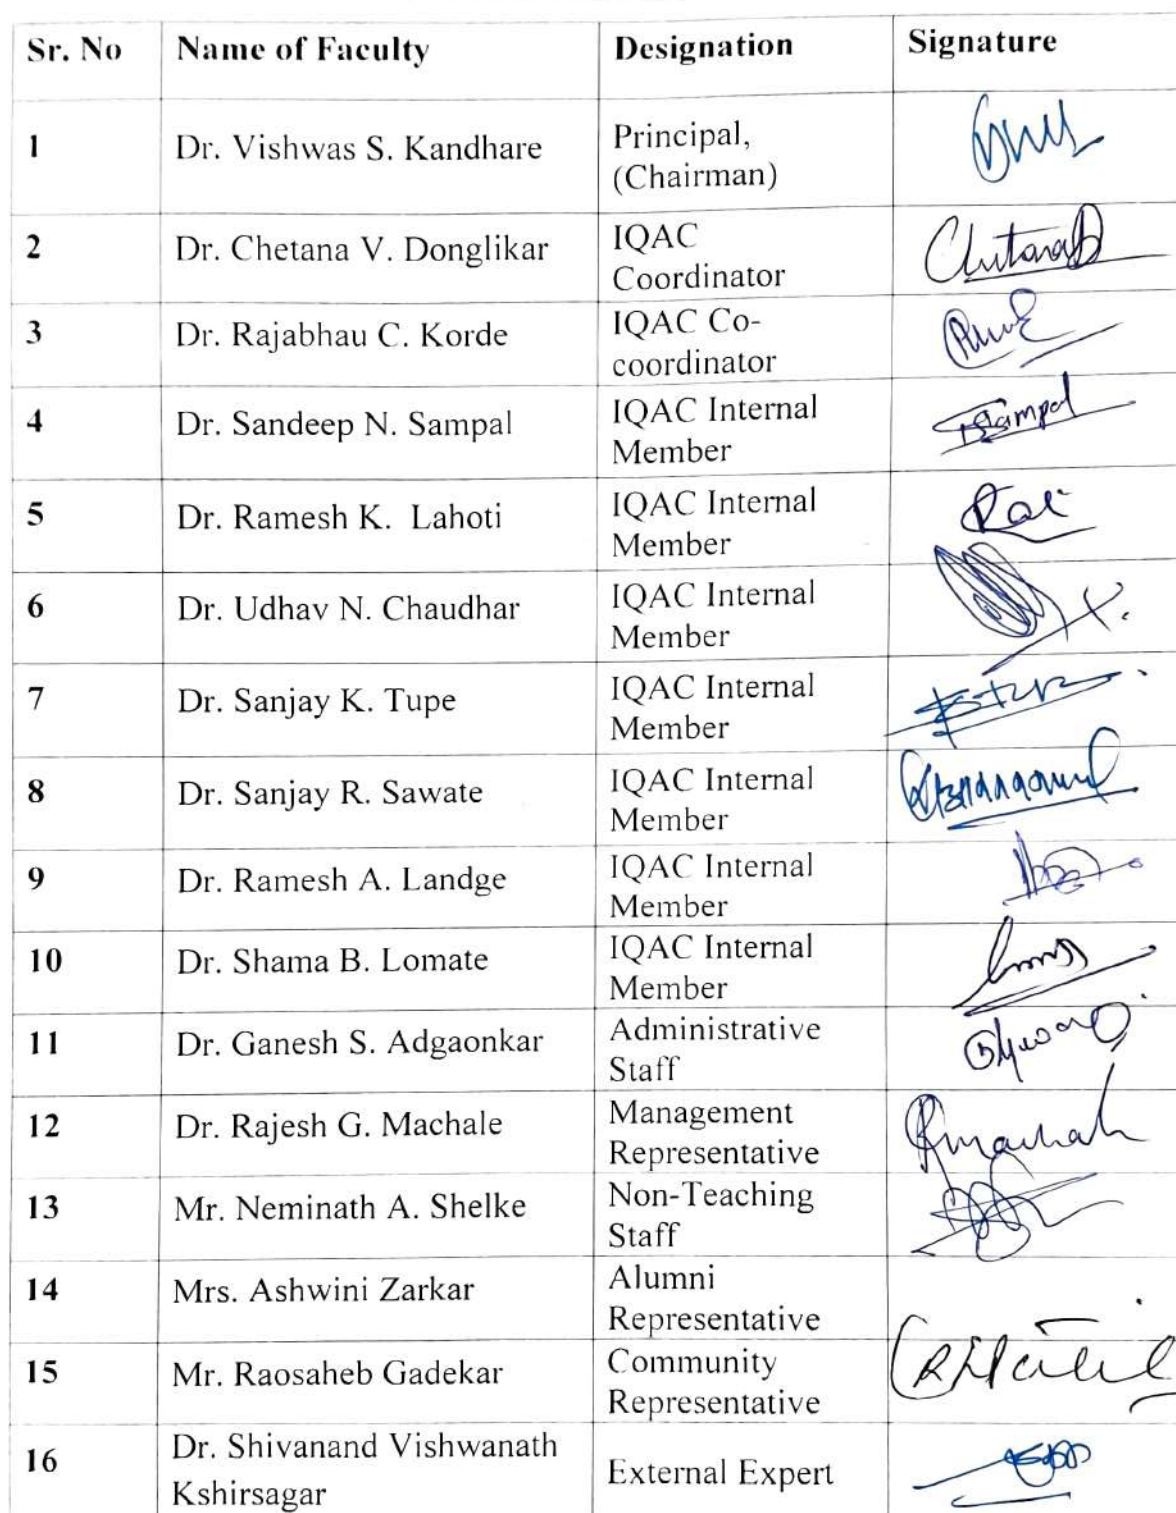 Sr. No Name of Faculty Designation Signature
1 Dr. Vishwas S. Kandhare Principal,
(Chairman)
2 Dr. Chetana V. Donglikar IQAC
Coordinator
3 Dr. Rajabhau C. Korde IQAC Co-
coordinator
4 Dr. Sandeep N. Sampal IQAC Internal
Member
5 Dr. Ramesh K. Lahoti IQAC Internal
Member
6 Dr. Udhav N. Chaudhar IQAC Internal
Member
7 Dr. Sanjay K. Tupe IQAC Internal
Member
8 Dr. Sanjay R. Sawate IQAC Internal
Member
9 Dr. Ramesh A. Landge IQAC Internal
Member
10 Dr. Shama B. Lomate IQAC Internal
Member
11 Dr. Ganesh S. Adgaonkar Administrative
Staff
12 Dr. Rajesh G. Machale Management
Representative
13 Mr. Neminath A. Shelke Non-Teaching
Staff
14 Mrs. Ashwini Zarkar Alumni
Representative
15 Mr. Raosaheb Gadekar Community
Representative
16 Dr. Shivanand Vishwanath
Kshirsagar External Expert